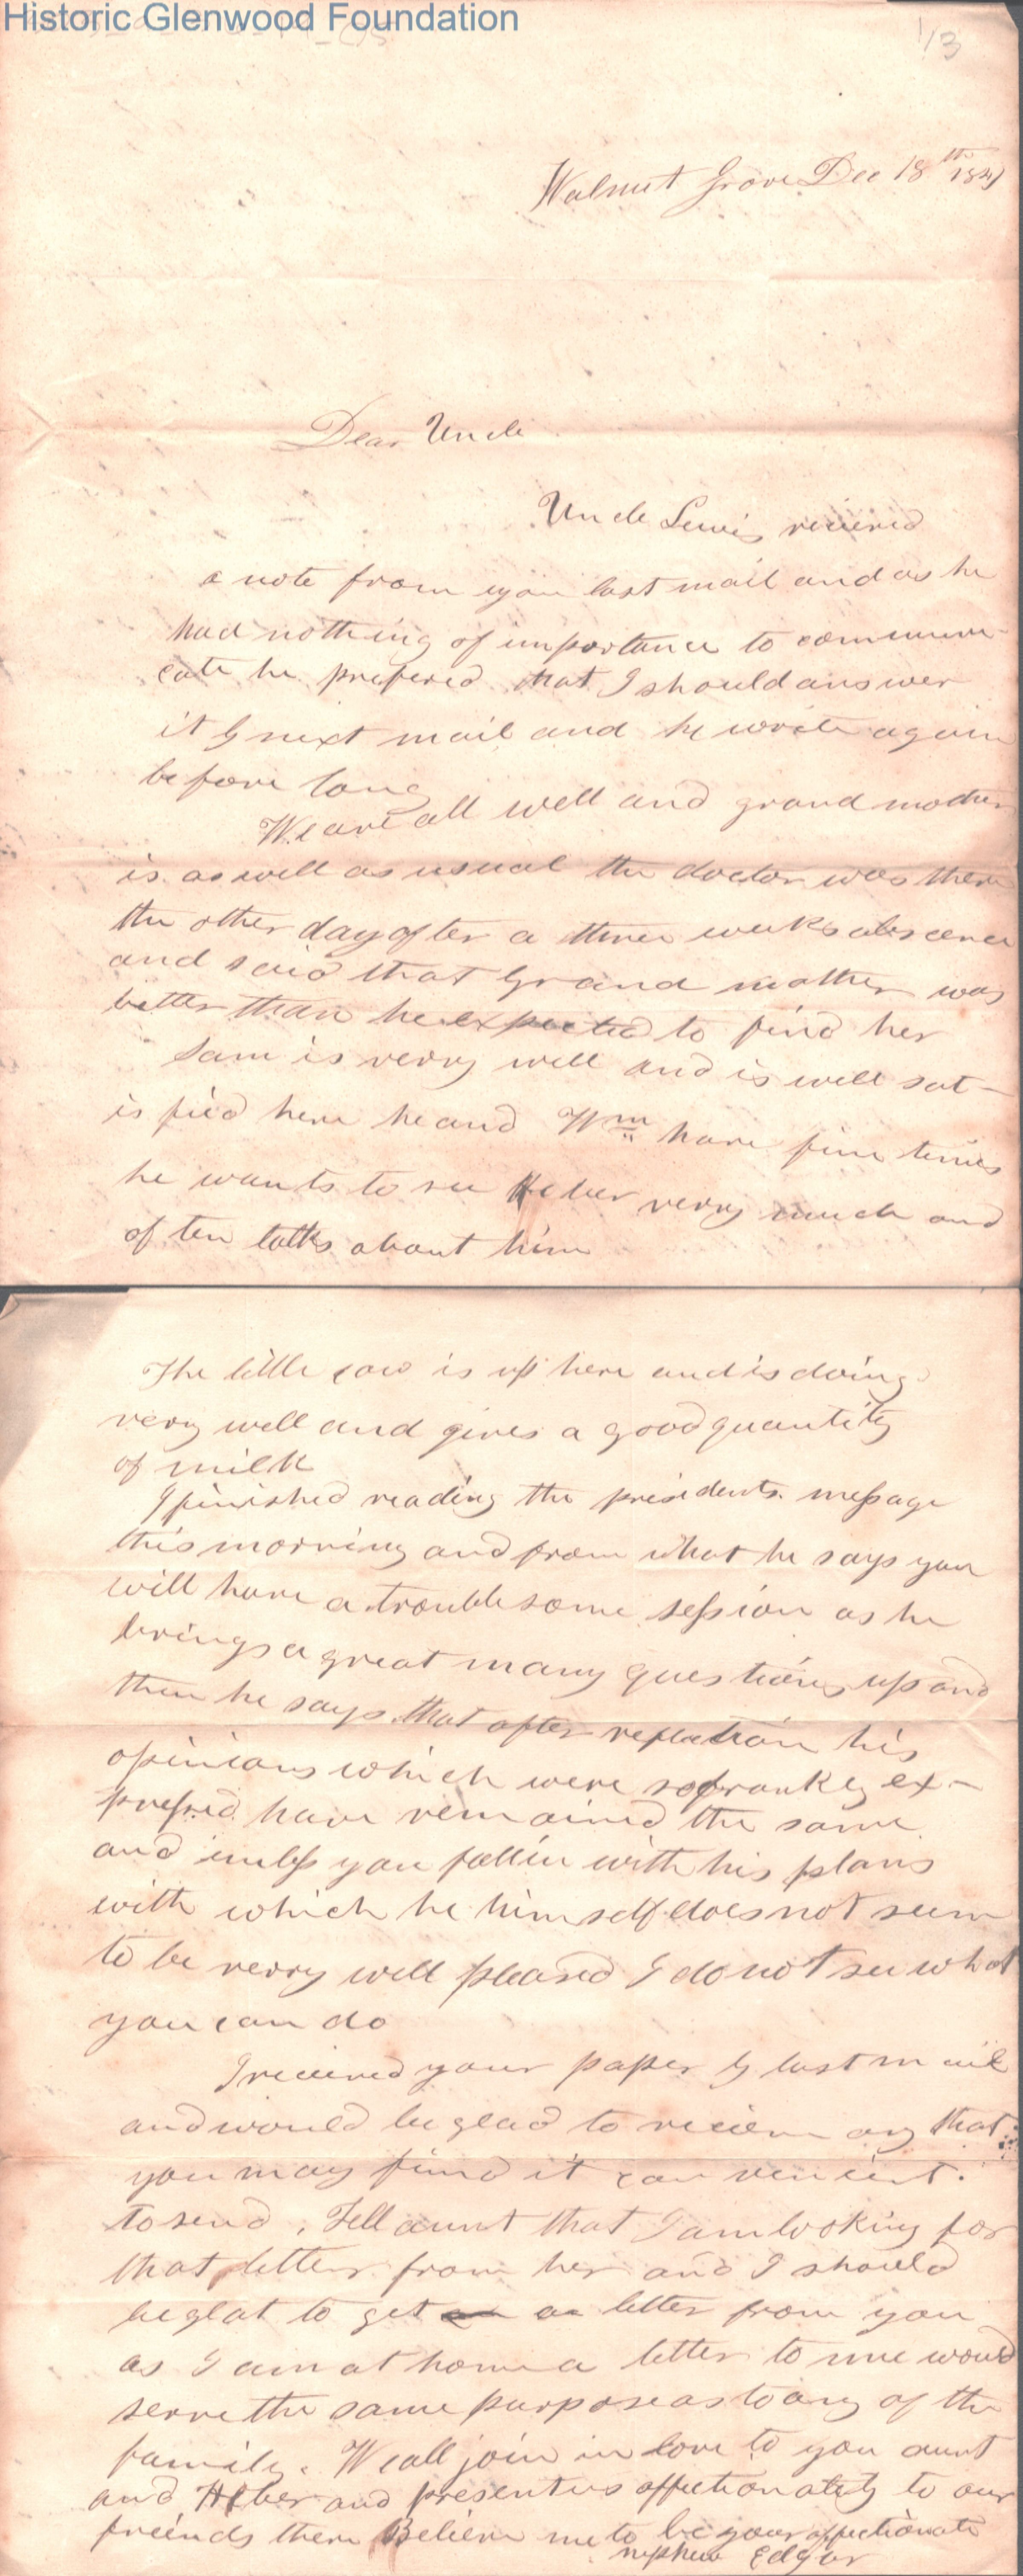 Historic Glenwood Foundation
1/3
Walnut Grove Dec 18th 1841
Dear Uncle
Uncle Lewis recieved
a note from you last mail and as he
had nothing of importance to communi-
cate he prefered that I should answer
it by next mail and he wrote again
before long
We are all well and grand mother
is as well as usual the doctor was there
the other day after a three weeks abscence
and said that Grand mother was
better than he expected to find her
Sam is verry well and is well sat-
isfied here he and Wm have fine times
he wants to see Heber verry much and
often talks about him
The little cow is up here and is doing
very well and gives a good quantity
of milk
I finished reading the presidents message
this morning and from what he says you
will have a troublesome session as he
brings a great many questions up and
then he says that after reflection his
opinions which were so frankly ex-
pressed have remained the same
and unless you fall in with his plans
with which he himself does not seem
to be verry well pleased I do not see what
you can do
I recieved your paper by last mail
and would be glad to recieve any that
you may find it convenient
to send. Tell aunt that I am looking for
that letter from her and I should
be glat to get a letter from you
as I am at home a letter to me would
serve the same purpose as to any of the
family. We all join in love to you aunt
and Heber and present us affectionately to our
freinds there Believe me to be your affectionate
nephew Edgar